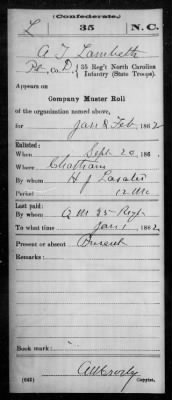 (Confederate.)
L 35 N.C.
A T Lambeth
Pvt, Co. D, 35 Reg't North Carolina
Infantry (State Troops).
Appears on
Company Muster Roll
of the organization named above,
for Jan & Feb, 1862
Enlisted:
When Sept 20, 186
Where Chatham
By whom H J Lasater
Period 12 Mo
Last paid:
By whom Q M 35 Regt
To what time Jan 1, 1862
Present or absent Present
Remarks:
Book mark:
(642) Copyist.